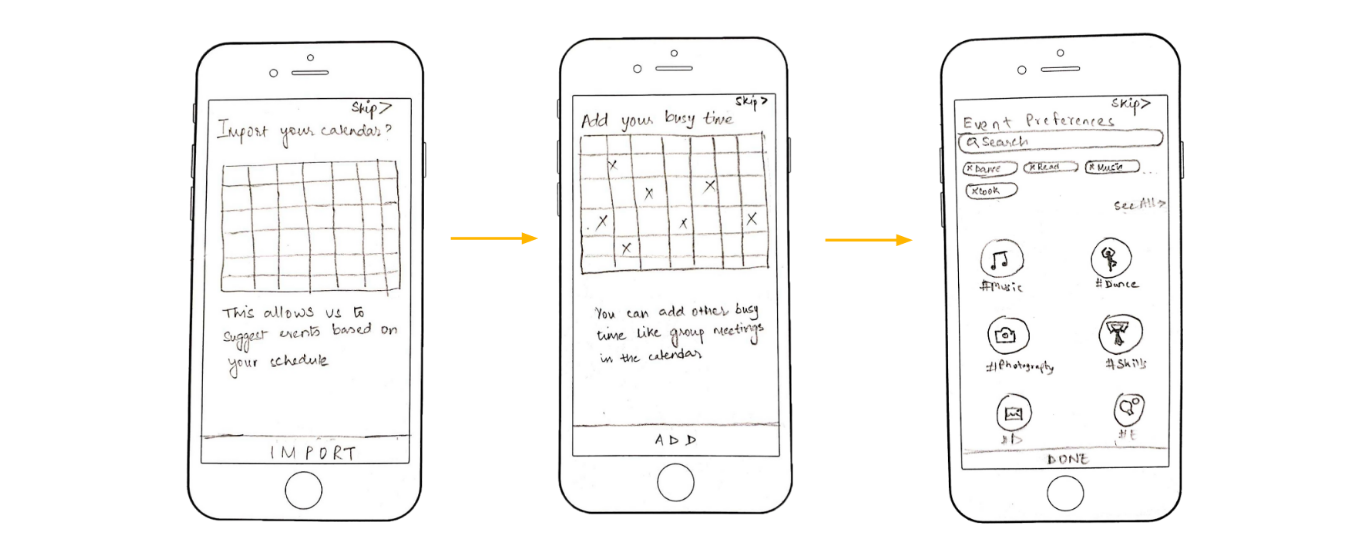 Skip>
Import your calendar?
This allows us to
suggest events based on
your schedule
IMPORT
Skip>
Add your busy time
X
X
X
X
X
X
X
You can add other busy
time like group meetings
in the calendar
ADD
Skip>
Event Preferences
Search
x Dance x Read x Music ...
x Cook
See All>
#Music #Dance
#Photography #Skills
#D #E
DONE